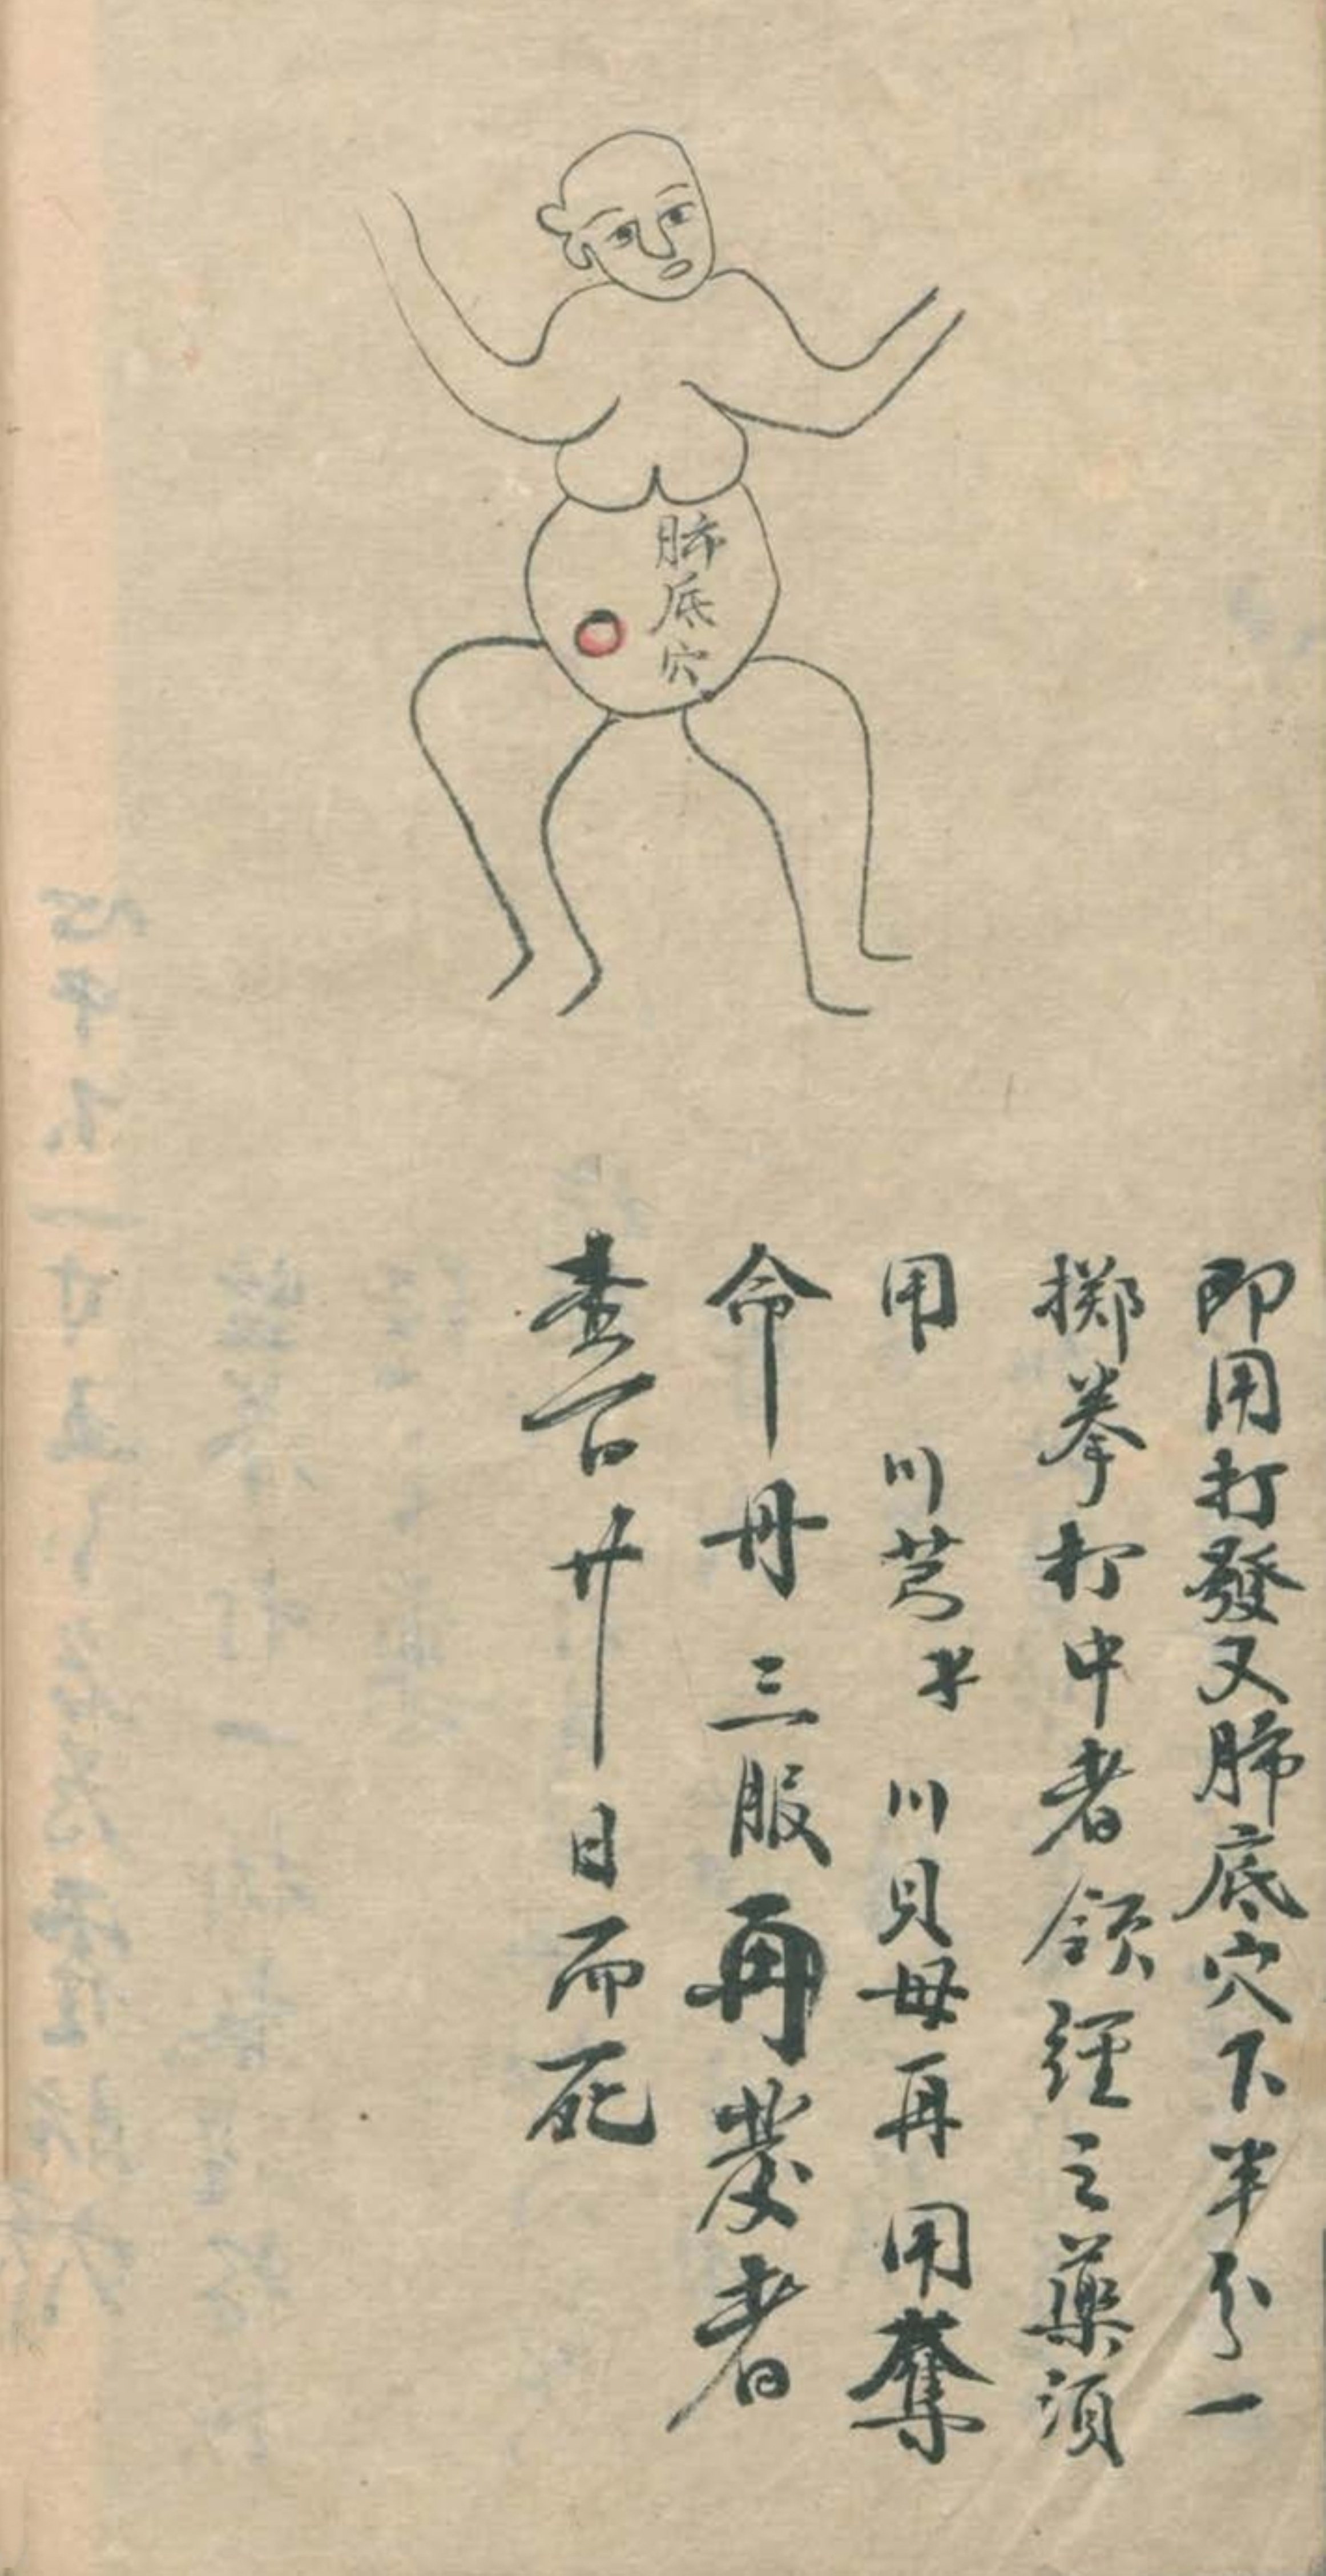 肺底穴
即用打發又肺底穴下半分一
擲拳打中者領經之藥須
用 川芎 川貝母再用奪
命丹三服再發者
壹百廿日而死